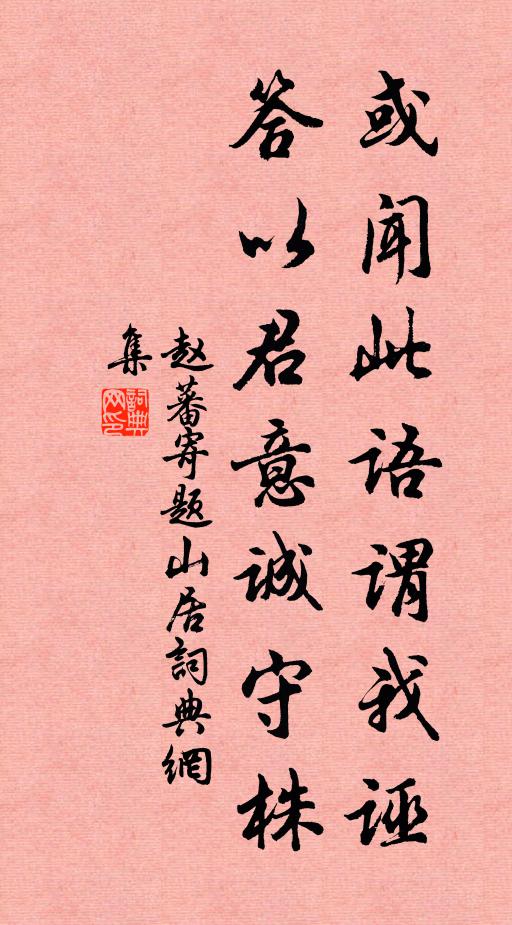 或闻此语谓我诬
答以君意诚守株
赵蕃寄题山居詞典網
集
詞典网印